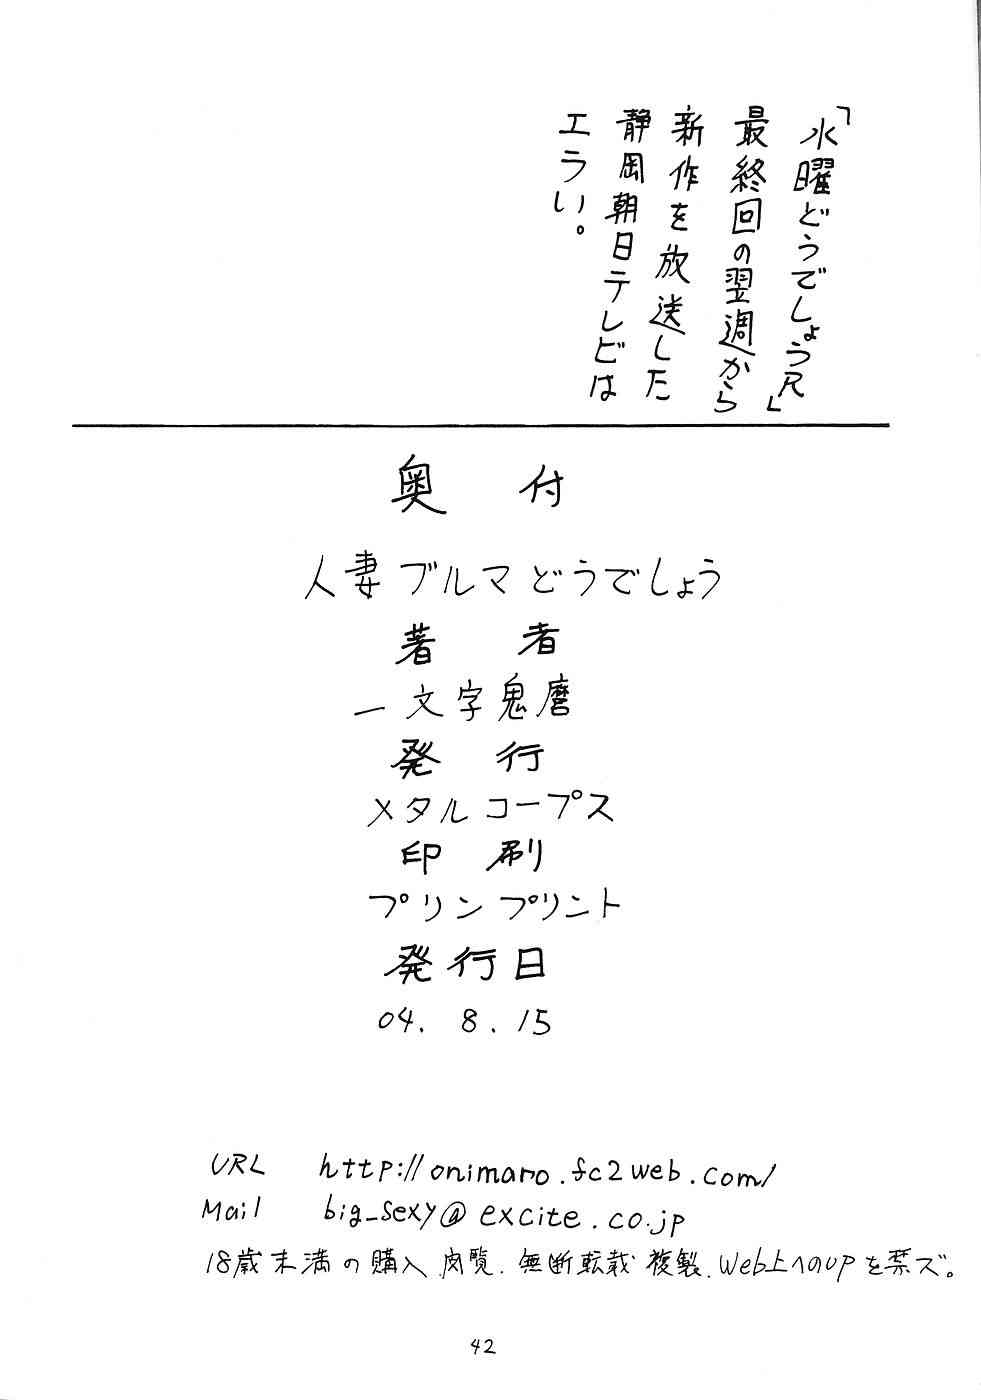 「水曜どうでしょうR」
最終回の翌週から
新作を放送した
静岡朝日テレビは
エラい。
奥付
人妻ブルマどうでしょう
著者
一文字鬼麿
発行
メタルコープス
印刷
プリンプリント
発行日
04. 8. 15
URL http://onimaro.fc2web.com/
Mail big_sexy@excite.co.jp
18歳未満の購入、閲覧、無断転載、複製、Web上へのUPを禁ズ。
42